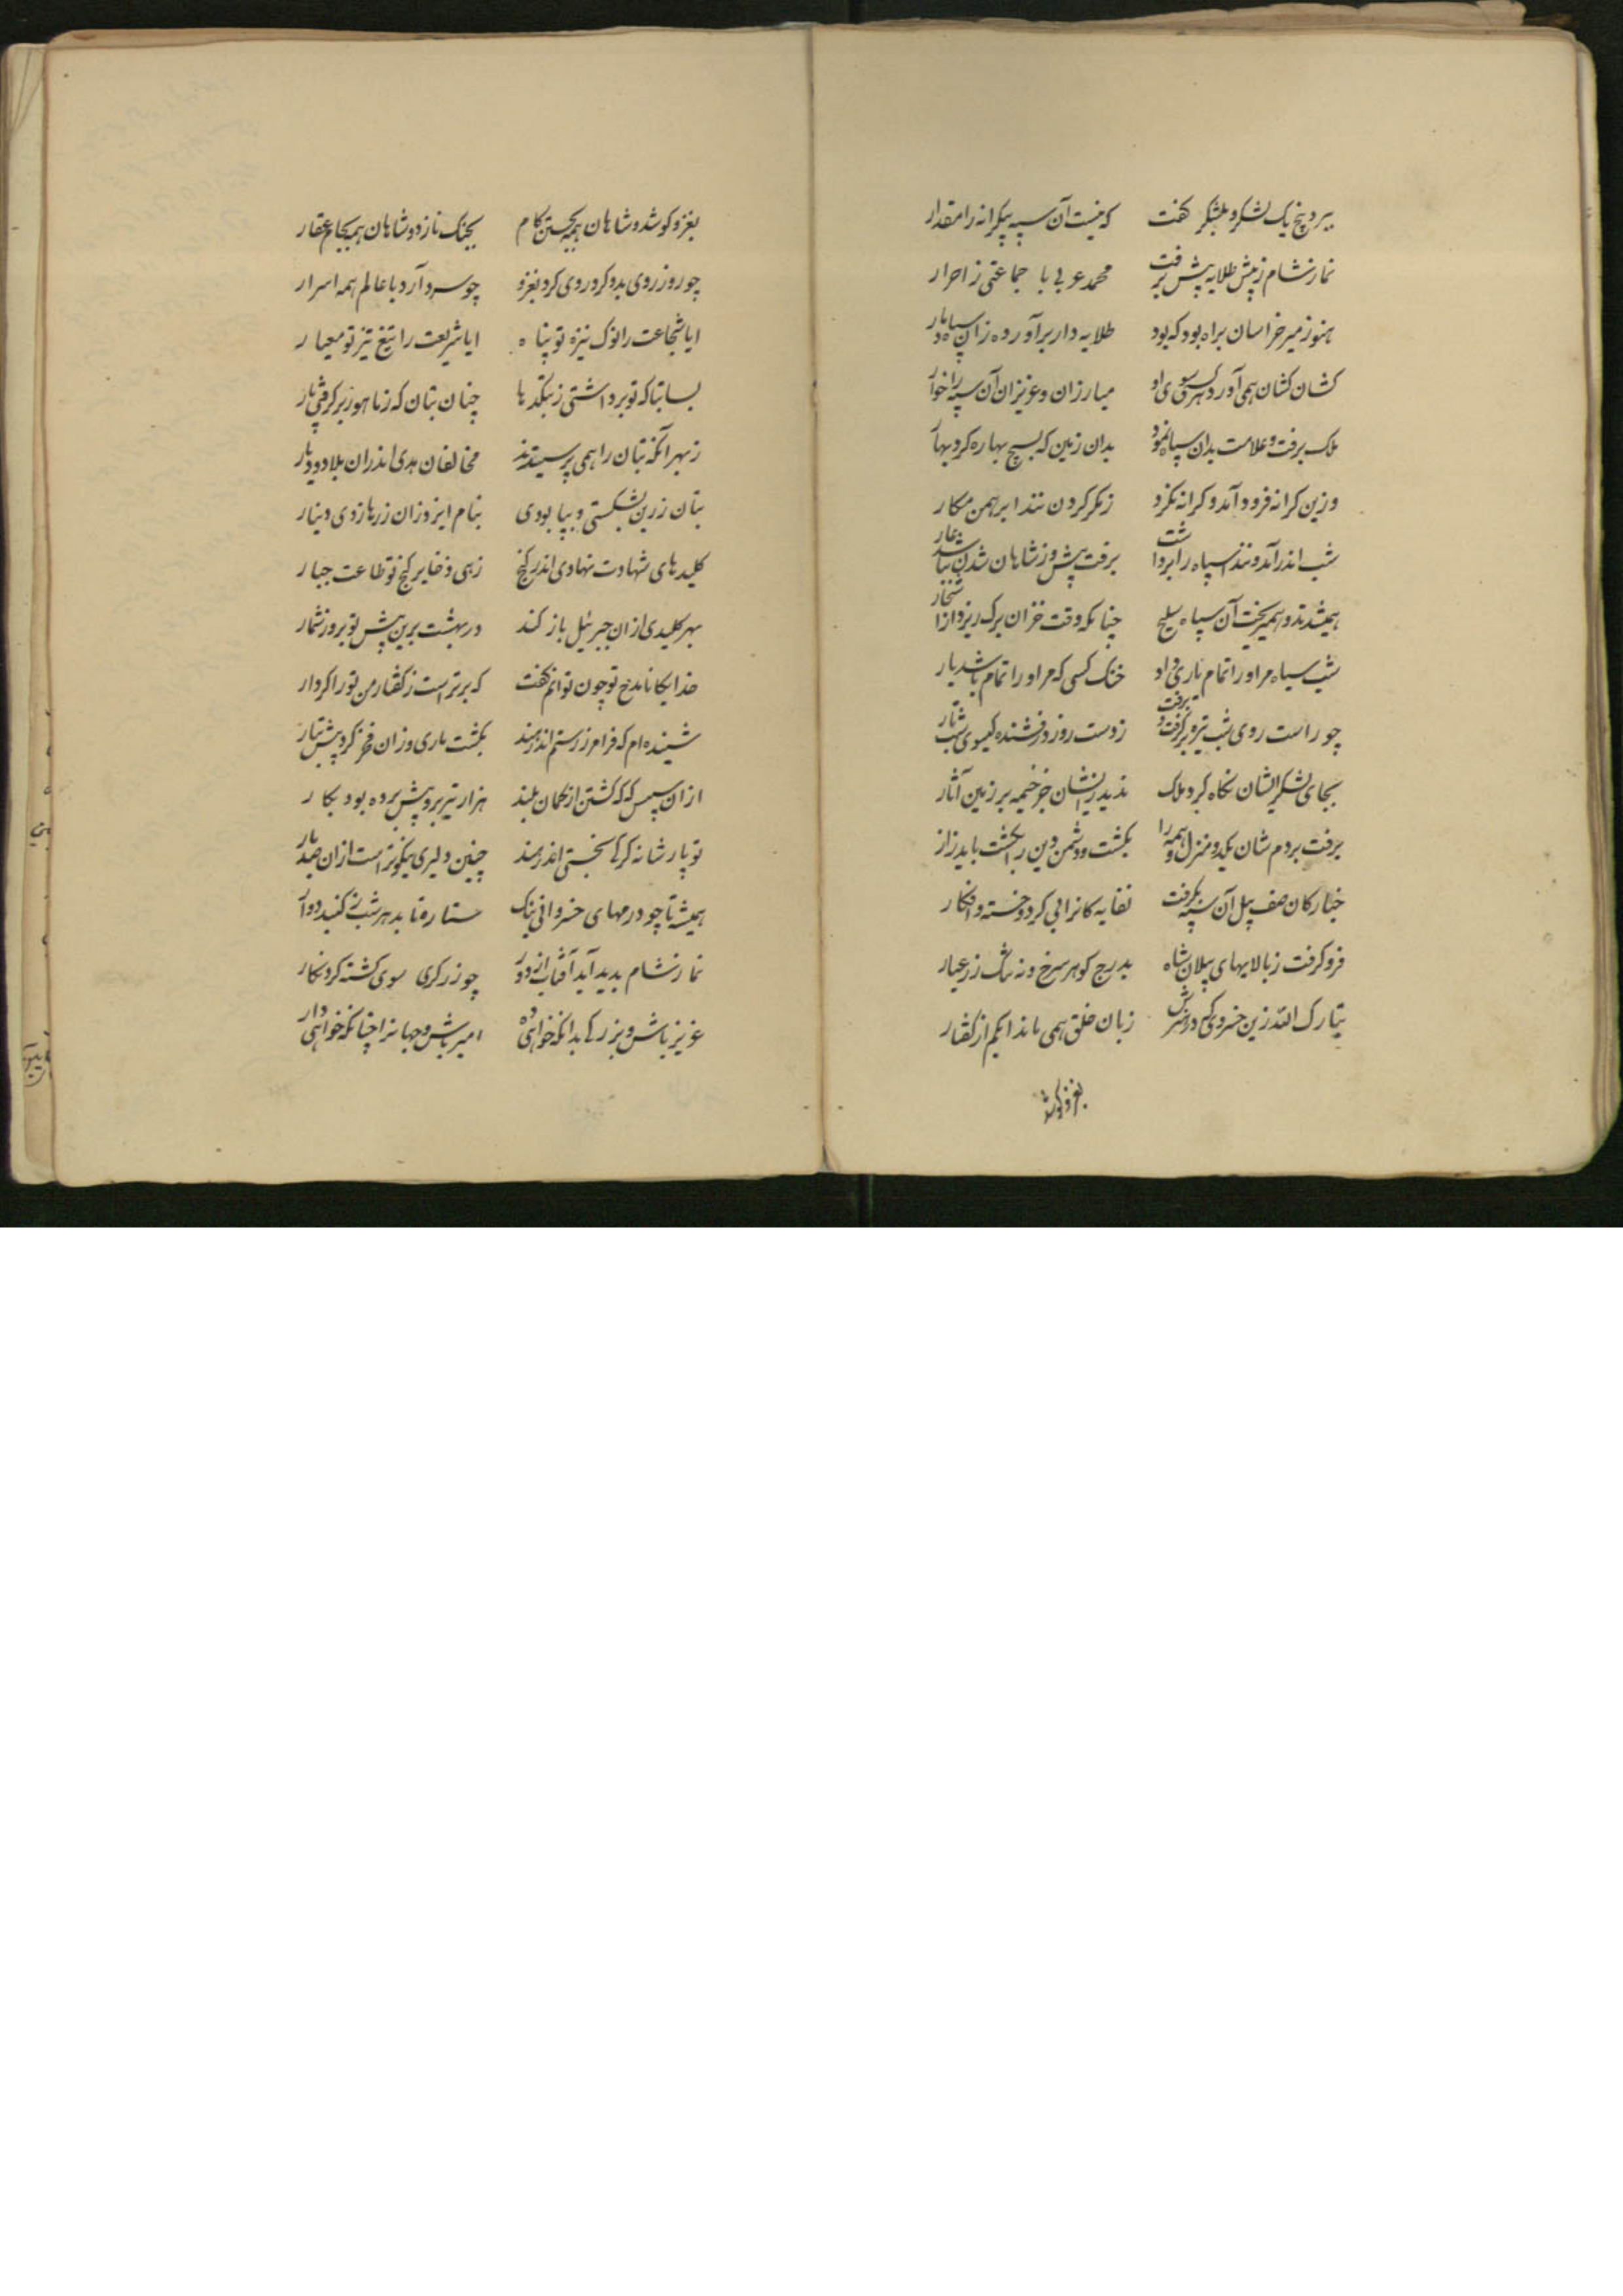 ببرد پنج یک لشکر و بلشکر گفت که نیست آن سپه بیکرانه را مقدار
نماز شام ز پیش طلایه پیش برفت محمد عربی با جماعتی ز احرار
هنوز میر خراسان براه بود که بود طلایه دار برآورده زان سپاه دمار
کشان کشان همی آورد هر کسی سوی او مبارزان و عزیزان آن سپه را خوار
ملک برفت و علامت بدان سپاه نمود بدان زمین که بسیج بهاره کرد بهار
وزین کرانه فرود آمد و کرانه نکرد ز مکر کردن نندا برهمن مکار
شب اندر آمد و نندا سپاه را برداشت برفت پیش و ز شاهان شدن نباشد عار
همی شدند و همی ریخت آن سپاه سلیح چنانکه وقت خزان برگ ریزد از اشجار
شب سیاه مر او را تمام یاری داد خنک کسی که مر او را تمام باشد یار
چو راست روی شب تیره برگرفت و برفت ز دست روز درفشنده گیسوی شب تار
بجای لشکر ایشان نگاه کرد ملک ندید زیشان جز خیمه بر زمین آثار
برفت بر دم شان یکدو منزل و همه را بکشت و دشمن دین را بکشت باید زار
خیارگان صف پیل آن سپه بگرفت نفایه گانرا پی کرد و خسته و افکار
فرو گرفت ز بالایهای پیلان شاه بدرج گوهر سرخ و به تنگ زر عیار
تبارک الله زین خسروی که در هنرش زبان خلق همی ماند ایکم از گفتار
بغزو کوشد
بغزو کوشد و شاهان همه بجستن کام بجنگ نازد و شاهان همه بجام عقار
چو روز روی بدو کرد روی کرد بغزو چو سر درآرد با عالم همه اسرار
ایا شجاعت را نوک نیزه تو پناه ایا شریعت را تیغ تیز تو معیار
بسا بتا که تو برداشتی ز بتکدها چنان بتان که ز ماهور برگرفتی پار
ز بهر آنکه بتان را همی پرستیدند مخالفان هدی اندران بلاد و دیار
بتان زرین بشکستی و بپالودی بنام ایزد زان زرها زدی دینار
کلیدهای شهادت نهادی اندر گنج زهی ذخایر گنج تو طاعت جبار
بهر کلیدی ازان جبرئیل باز کند در بهشت برین پیش تو بروز شمار
خدایگانا مدح تو چون توانم گفت که برتر است ز گفتار من تو را کردار
شنیده ام که فرامرز رستم اندر سند بکشت ماری و زان فخر کرد پیش تبار
ازان سپس که گه کشتن از کمان بلند هزار تیر برو پیش برده بود بکار
تو پار شانه کرگی بخستی اندر هند چنین دلیری نیکوتر است ازان صد بار
همیشه تا چو درمهای خسروانی نیک ستاره تابد هر شب ز گنبد دوار
نماز شام پدید آید آفتاب از دور چو زرگری سوی گشته گرد نگار
عزیز باش و بزرگی بدانکه خواهی ده امیر باش و جهان را چنانکه خواهی دار